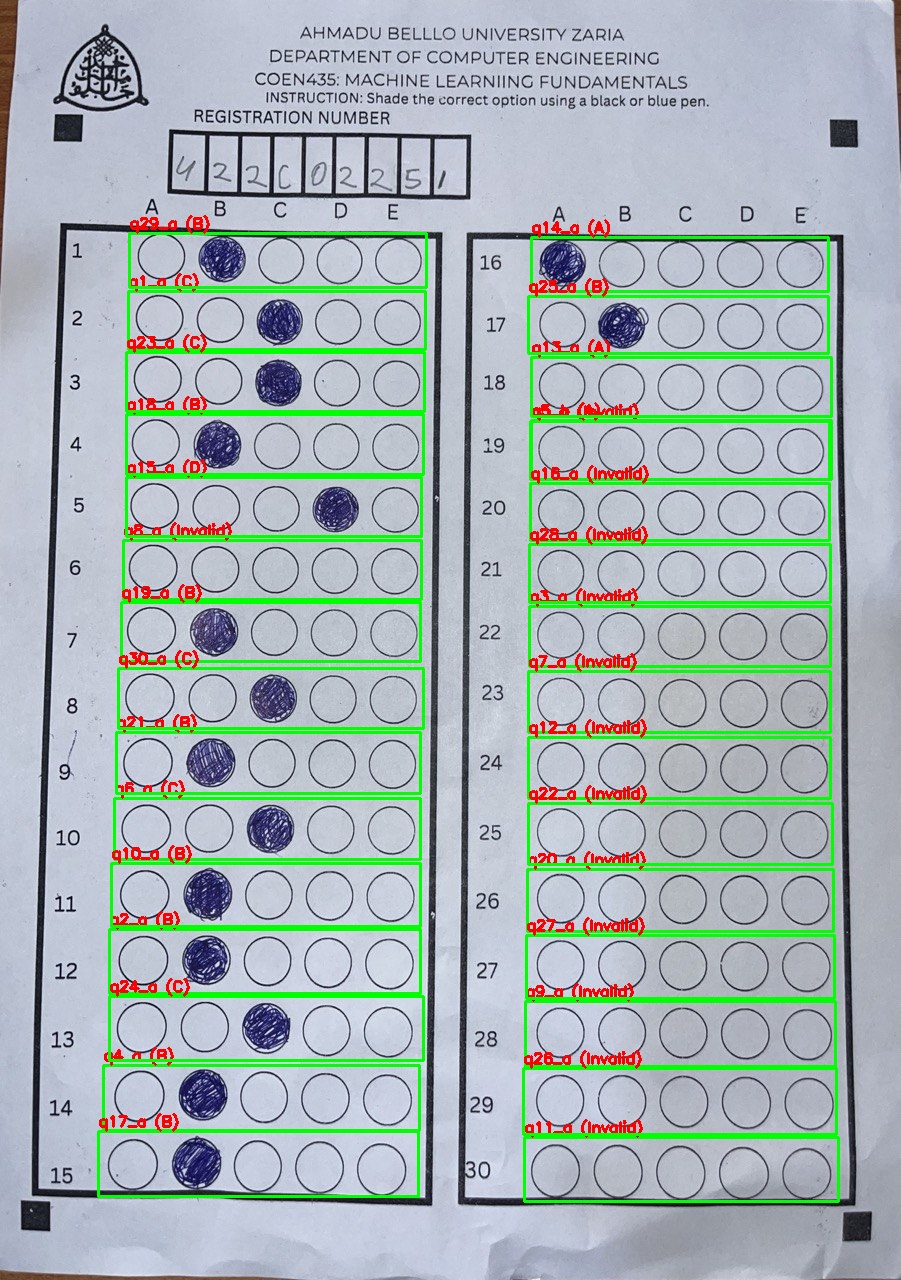 AHMADU BELLLO UNIVERSITY ZARIA
DEPARTMENT OF COMPUTER ENGINEERING
COEN435: MACHINE LEARNIING FUNDAMENTALS
INSTRUCTION: Shade the correct option using a black or blue pen.
REGISTRATION NUMBER
4 2 2 C 0 2 2 5 1
A B C D E
q29_a (B)
1
q1_a (C)
2
q23_a (C)
3
q18_a (B)
4
q15_a (D)
5
q8_a (Invalid)
6
q19_a (B)
7
q30_a (C)
8
q21_a (B)
9
q6_a (C)
10
q10_a (B)
11
q2_a (B)
12
q24_a (C)
13
q4_a (B)
14
q17_a (B)
15
A B C D E
q14_a (A)
16
q25_a (B)
17
q13_a (A)
18
19
q16_a (Invalid)
20
q28_a (Invalid)
21
q3_a (Invalid)
22
q7_a (Invalid)
23
q12_a (Invalid)
24
q22_a (Invalid)
25
q20_a (Invalid)
26
q27_a (Invalid)
27
q9_a (Invalid)
28
q26_a (Invalid)
29
q11_a (Invalid)
30